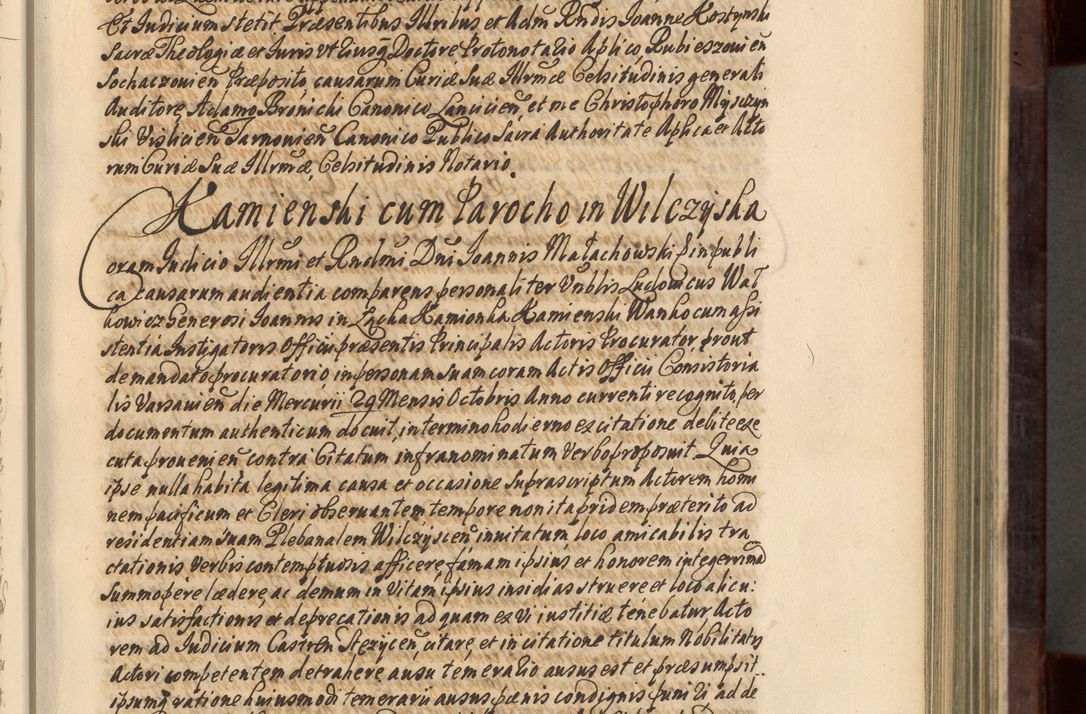 Et Judicium stetit, Præsentibus Illribus et Adm Rndis Joanne Kostynski
Sacræ Theologiæ et Juris Vt[riusq] Doctore Protonotario Aplico, Rubieszouien
Sochaczouien Præposito, causarum Curiæ Suæ Illrmæ Celsitudinis generali
Auditore, Adamo Bronicki Canonico Lancicien, et me Christophoro Mysczyn
ski Vislicien Tarnouien Canonico Publico Sacra Authoritate Aplica et Acto
rum Curiæ Suæ Illrmæ Celsitudinis Notario.
Kamienski cum Parocho in Wilczyska
Coram Judicio Illrmi et Rndmi Dni Joannis Małachowski E in publi
ca causarum audientia comparens personaliter Vnblis Ludouicus Wał
kowicz Generosi Joannis in Lacka Kamionka Kamienski Wanko cum assi
stentia Instigatoris Officii præsentis Principalis Actoris Procurator, prout
de mandato procuratorio in personam suam coram Actis Officii Consistoria
lis Varsauien die Mercurii 29 Mensis Octobris Anno currenti recognito, per
documentum authenticum docuit, in termino hodierno ex citatione debite exe
cuta prouenien contra Citatum infranominatum Verbo proposuit. Quia
ipse nulla habita legitima causa et occasione suprascriptum Actorem homi
nem pacificum et Cleri obseruantem tempore non ita pridem præterito ad
residentiam suam Plebanalem Wilczyscen inuitatum loco amicabilis tra
ctationis Verbis contemptuosis afficere, famam ipsius et honorem integerrimũ
summopere lædere, ac demum in Vitam ipsius insidias struere et loco alicu:
ius satisfactionis et deprecationis ad quam ex Vi iustitiæ tenebatur Acto
rem ad Judicium Castren Stezycen citare, et in citatione titulum Nobilitatis
Actori competentem detrahere ausu temerario ausus est et præsumpsit.
ipsumq ratione huiusmodi temerarii ausus pænis condignis puniri ad de